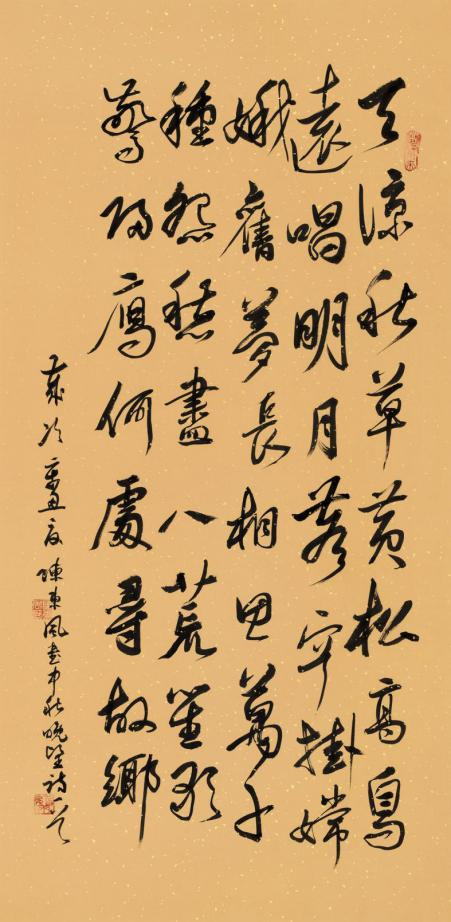 天涼秋草黄松高鳥
遠唱明月蒼穹掛嫦
娥舊夢長相思萬千
種怨愁盡八荒笙歌
驚歸鴈何處尋故鄉
歲次 陳東風書中秋晚望詩一首